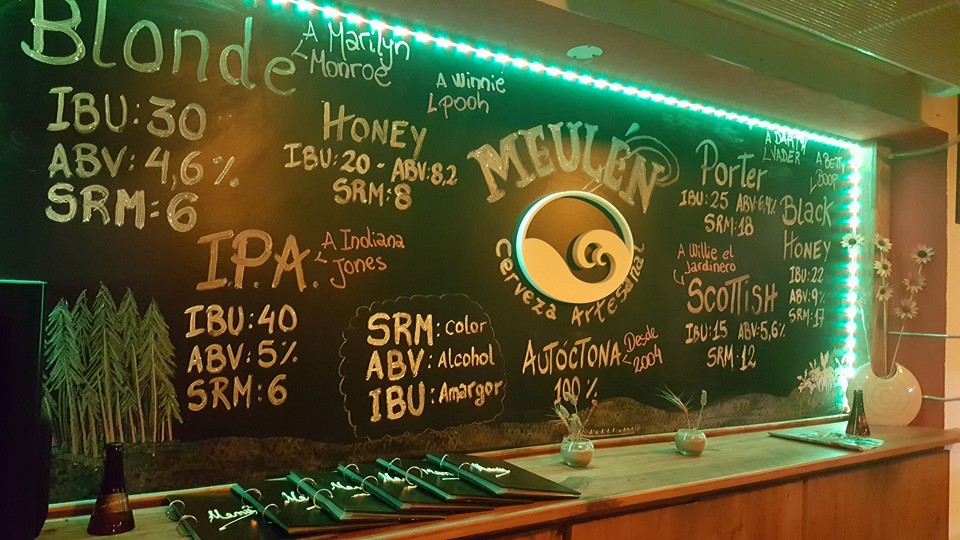 Blonde
A Marilyn
Monroe
IBU: 30
ABV: 4,6%
SRM: 6
A Winnie
Pooh
HONEY
IBU: 20 - ABV: 8,2
SRM: 8
I.P.A.
A Indiana
Jones
IBU: 40
ABV: 5%
SRM: 6
SRM: Color
ABV: Alcohol
IBU: Amargor
MEULÉN
Cerveza Artesanal
AUTÓCTONA
100%
Desde
2004
A DARTH
VADER
Porter
IBU: 25 ABV: 6,4%
SRM: 18
A BETTY
BOOP
Black
HONEY
IBU: 22
ABV: 9%
SRM: 17
A Willie el
Jardinero
SCOTTISH
IBU: 15 ABV: 5,6%
SRM: 12
Menú